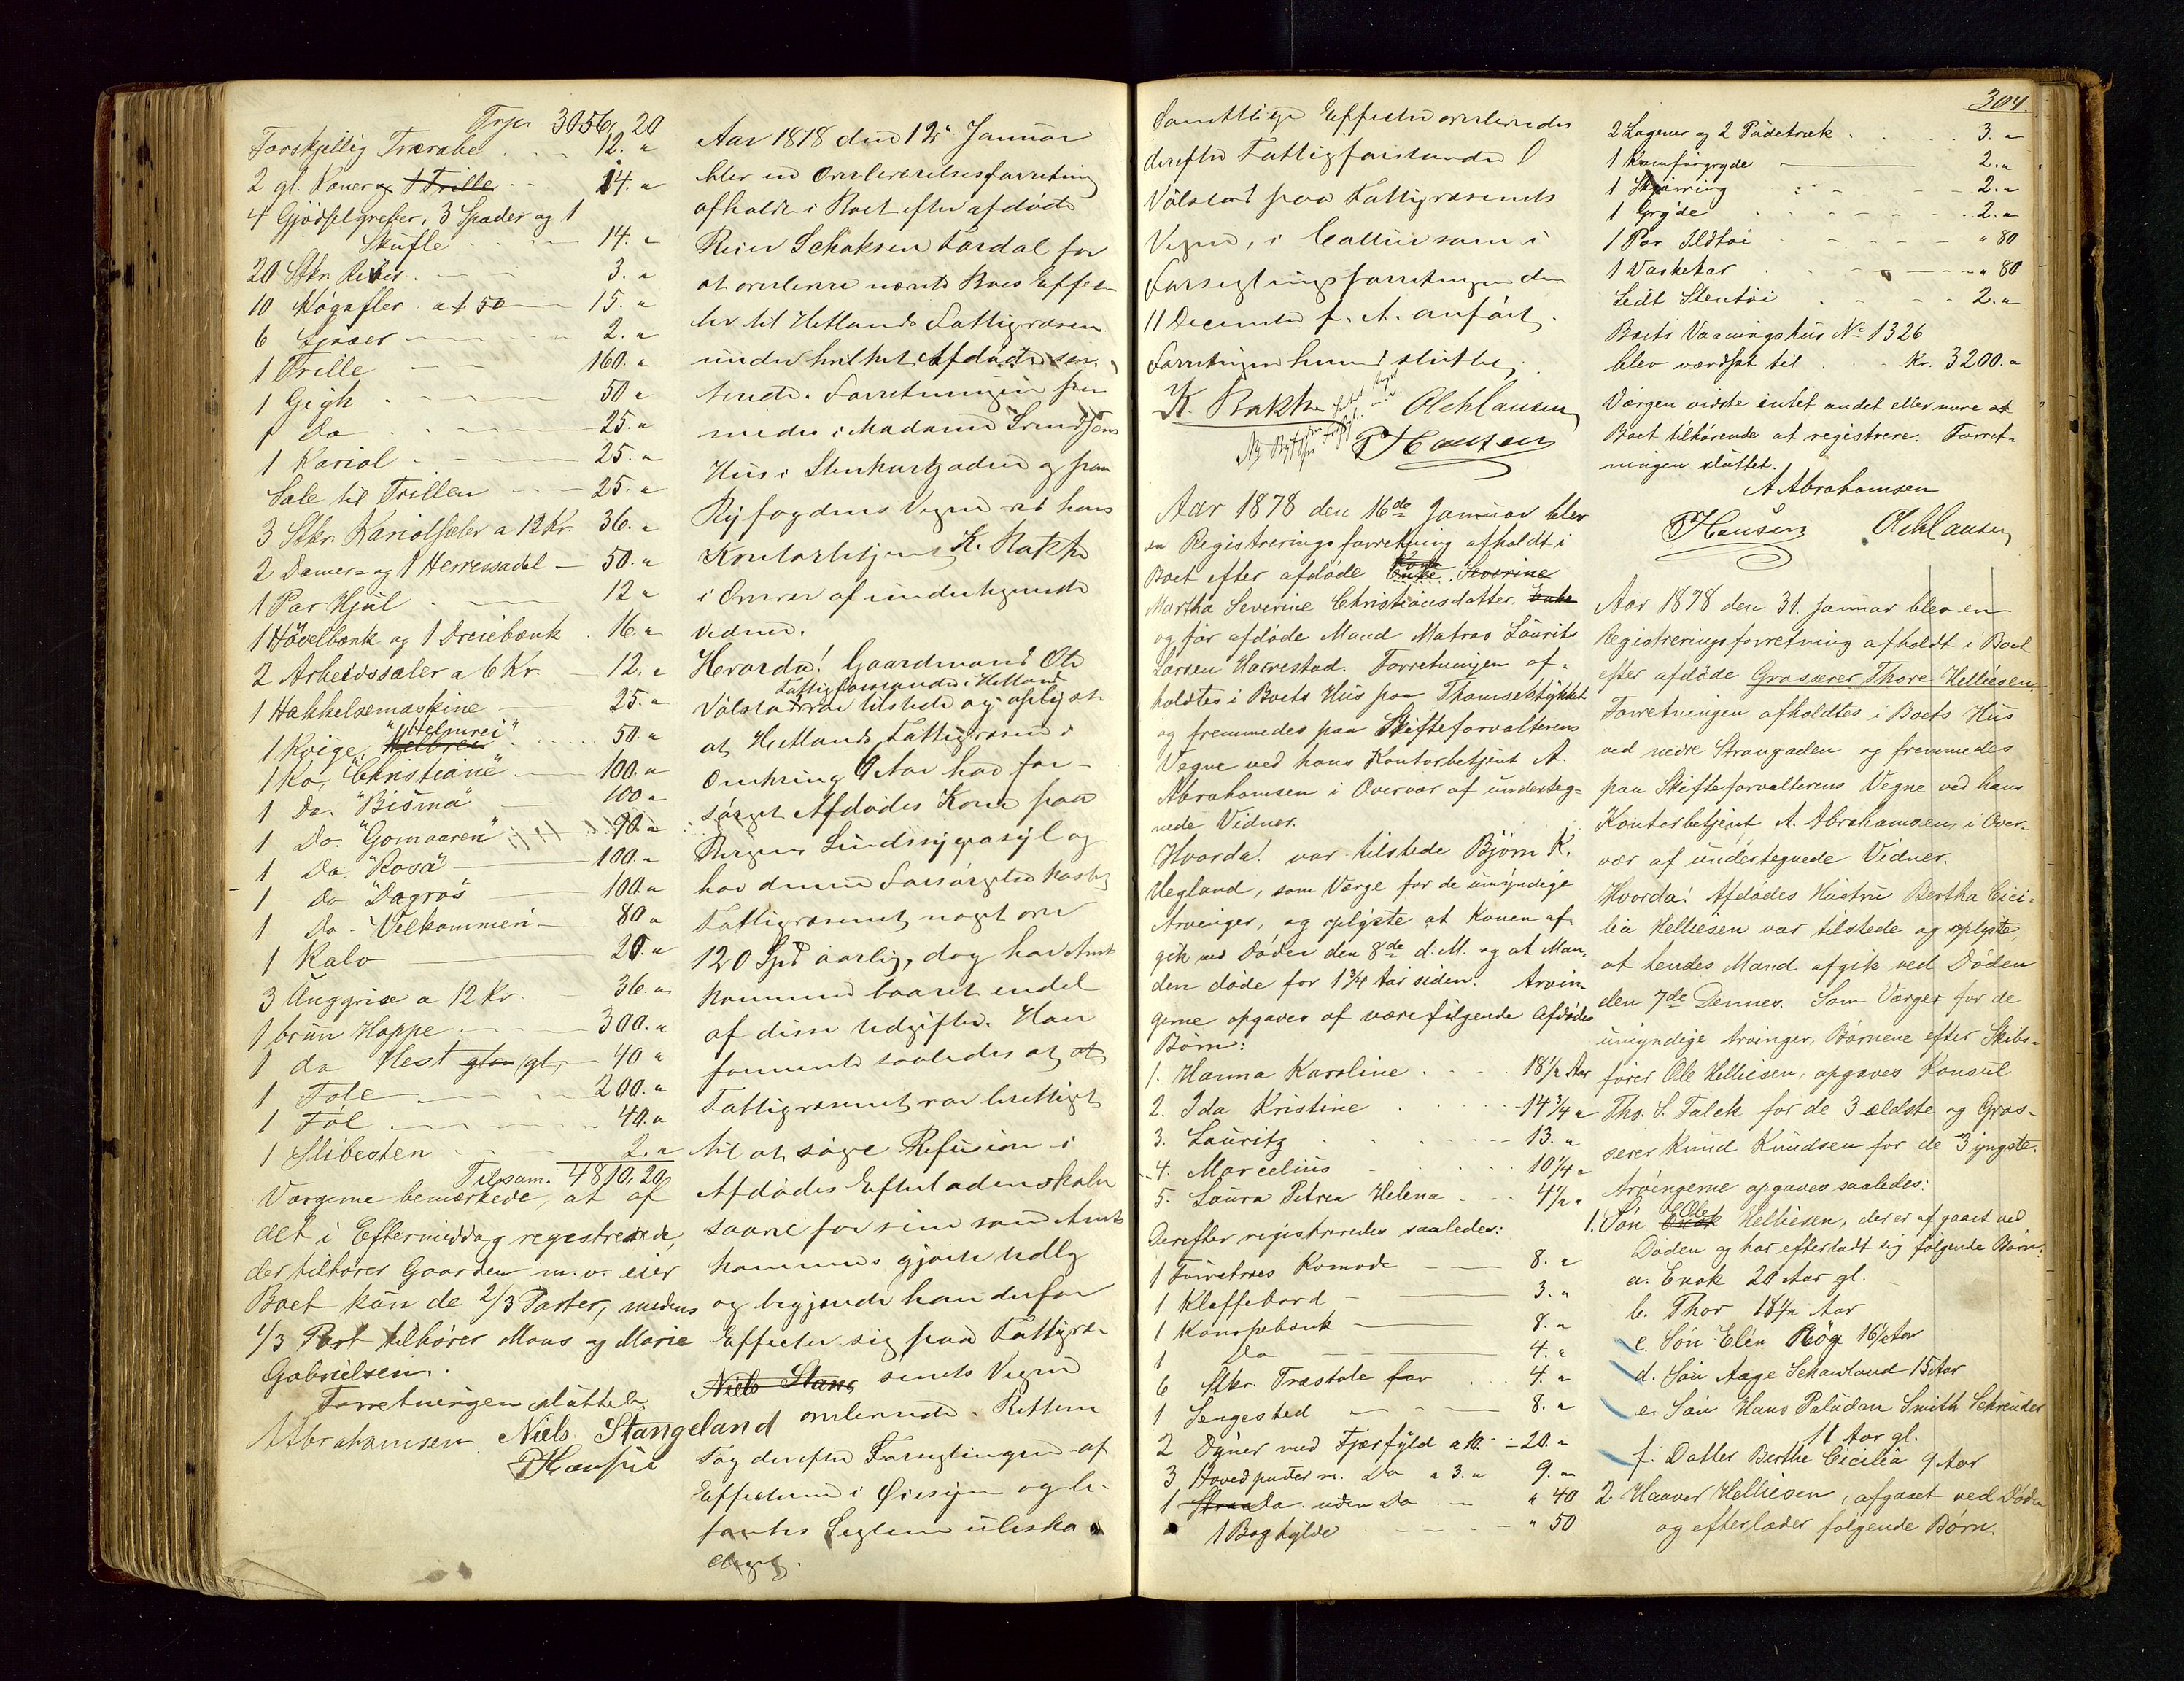 Trpr 3056, 20
Forskjellig Trærabe . . . 12. "
2 gl. Kaner og 1 Trille . . 14. "
4 Gjødselgreber, 3 Spader og 1
Skufle . . . 14. "
20 Stkr. River . . 3. "
10 Høgafler a 1.50 15. "
6 Ljaaer 2. "
1 Trille 160. "
1 Gigh 50 "
1 Do 25. "
1 Kariol 25. "
Sæle til Trillen 25. "
3 Stkr. Kariolsæler a 12 Kr. 36. "
2 Damer= og 1 Herresadel 50. "
1 Par Hjul 12 "
1 Høvelbænk og 1 Dreiebænk 16. "
2 Arbeidssæler a 6 Kr. 12. "
1 Hakkelsemaskine 25. "
1 Kvige, "Helmrei" 50. "
1 Ko, "Christiane" 100. "
1 Do. "Bisma" 100 "
1 Do. "Gomaaren" 90. "
1 Do. "Rosa" 100. "
1 Do "Dagros" 100. "
1 Do - "Velkommen" 80 "
1 Kalv 20. "
3 Unggrise a 12 Kr. 36. "
1 brun Hoppe 300. "
1 do Hest gl. 40 "
1 Fole 200. "
1 Føl 40. "
1 Slibesten 2. "
Tilsam. 4810,20
Værgerne bemærkede, at af
det i Eftermiddag regestrerede,
der tilhører Gaarden m. v. eier
Boet kun de 2/3 Parter, medens
1/3 Part tilhører Mons og Marie
Gabrielsen.
Forretningen sluttet.
A Abrahamsen. Niels Stangeland
T Hansen
Aar 1878 den 12te Januar
blev en Overleverelsesforretning
afholdt i Boet efter afdøde
Reier Schaksen Tordal for
at overlevere nævnte Boes Effec
ter til Hetlands Fattigvæsen
under hvilket Afdøde sor-
terede. Forretningen frem
medes i Madame Svendsens
Hus i Stenkargaden og paa
Byfogdens Vegne ved hans
Kontorbetjent K. Bakke
i Overvær af undertegnede
Vidner.
Hvorda! Gaardmand Ole
Fattigforstander i Hetland
Vølstad var tilstede og oplyste
at Hetlands Fattigvæsen i
omkring 9 Aar har for-
sørget Afdødes Kone paa
Bergens Sindssygeasyl og
har denne Forsørgelse kostet
Fattigvæsenet noget over
120 Spd aarlig, dog har Amts
kommunen baaret endel
af disse Udgifter. Han
formente saaledes at at
Fattigvæsenet var berettiget
til at søge Refusion i
Afdødes Efterladenskaber
saavel for sine som Amts
kommunens gjorte Udlæg
og begjærede han derfor
Effecter sig paa Fattigvæ-
Niels Stang senets Vegne
overleveret. Retten
tog derefter Forseglingen af
Effecterne i Øiesyn og be-
fandtes Seglene ubeska
diget.
304.
Samtlige Effecter overleveredes
derefter Fattigforstander O
Vølstad paa Fattigvæsenets
Vegne, i Callur som i
Forseglingsforretningen den
11 December f. A. anført.
Forretningen hermed sluttet.
K. Bakke O Ch Clausen
T Hansen
Aar 1878 den 16de Januar blev
en Registreringsforretning afholdt i
Boet efter afdøde Kone Enke Severine
Martha Severine Christiansdatter, Enke
og før afdøde Mand Matros Laurits
Larsen Harrestad. Forretningen af-
holdtes i Boets Hus paa Thomsestykket
og fremmedes paa Skifteforvalterens
Vegne ved hans Kontorbetjent A.
Abrahamsen i Overvær af underteg-
nede Vidner.
Hvorda! var tilstede Bjørn K.
Hegland, som Værge for de umyndige
Arvinger, og oplyste at Konen af-
gik ved Døden den 8de d. M. og at Man-
den døde for 1 3/4 Aar siden. Arvin
gerne opgaves af være følgende Afdødes
Børn:
1. Hanna Karoline . . . 18 1/2 Aar
2. Ida Kristine . . . 14 3/4 "
3. Lauritz . . . 13. "
4. Marcelius . . . 10 1/4 "
5. Laura Petrea Helena . . . 4 1/2 "
Derefter registreredes saaledes:
1 Furetræes Komode 8. "
1 Klaffebord 3. "
1 Kanapebænk 8. "
1 Do 4. "
6 Stkr. Træstole for . . 4. "
1 Sengested 8. "
2 Dyner med Fjærfyld a 10. 20. "
3 Hovedpuder m. Do a 3. " 9. "
1 Do. uden Do " 40
1 Boghylde " 50
2 Lagener og 2 Pudetræk . . . 3. "
1 Komførgryde 2. "
1 Skjørring 2. "
1 Gryde 2. "
1 Par Ildtøi " 80
1 Vasketar " 80
Lidt Stentøi 2. "
Boets Vaaningshus No 1326
blev værdsat til . . . Kr. 3200. "
Værgen vidste intet andet eller mere at
Boet tilhørende at registrere. Forret-
ningen sluttet.
A Abrahamsen
T Hansen O Ch Clausen
Aar 1878 den 31. Januar blev en
Registreringsforretning afholdt i Boet
efter afdøde Grosserer Thore Helliesen.
Forretningen afholdtes i Boets Hus
ved nedre Strangaden og fremmedes
paa Skifteforvalterens Vegne ved hans
Kontorbetjent A. Abrahamsen, i Over-
vær af undertegnede Vidner.
Hvorda! Afdødes Hustru Bertha Cici-
lia Helliesen var tilstede og oplyste,
at hendes Mand afgik ved Døden
den 7de Dennes. Som Værger for de
umyndige Arvinger, Børnene efter Skibs-
fører Ole Helliesen, opgaves Konsul
Ths. S. Falck for de 3 ældste og Gros-
serer Knud Knudsen for de 3 yngste.
Arvingerne opgaves saaledes:
1. Søn Ole Helliesen, der er afgaaet ved
Døden og har efterladt sig følgende Børn:
a. Enok 20 Aar gl.
b. Thor 18 1/2 Aar
c. Søn Elen Røg 16 1/2 Aar
d. Søn Aage Schavland 15 Aar
e. Søn Hans Paludan Smith Schreuder
11 Aar gl.
f. Datter Berthe Cicilia 9 Aar
2 Haaver Helliesen, afgaaet ved Døden
og efterlader følgende Børn.